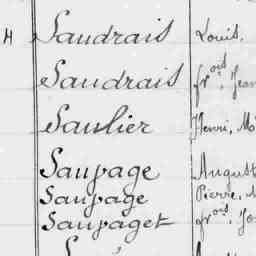 H Saudrais Louis.
Saudrais frois, Jean
Saulier Henri, M
Saupage August
Saupage Pierre,
Saupaget frois, Jo